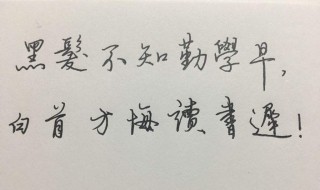 黑髮不知勤學早，
白首方悔讀書遲！